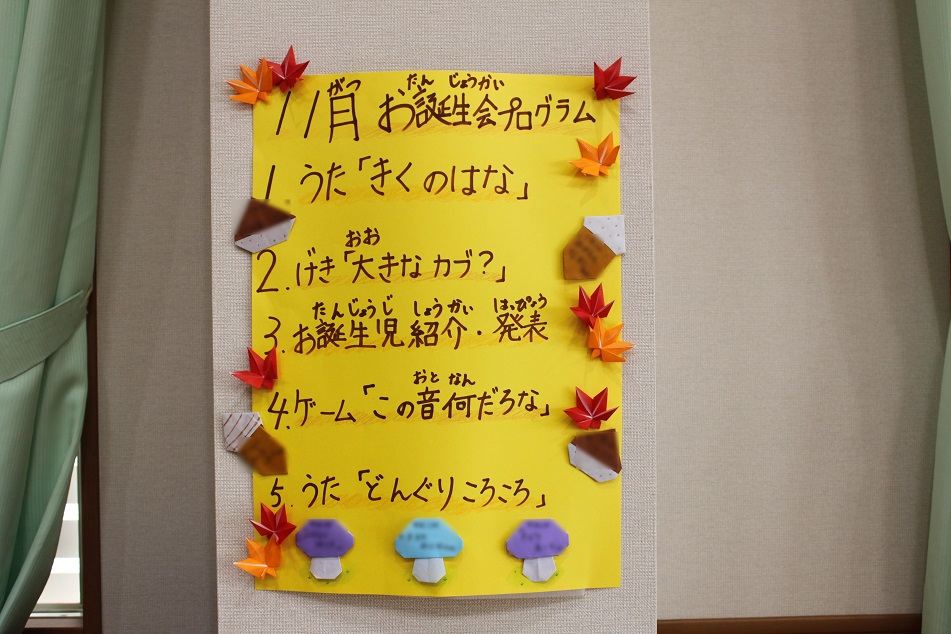 11月 お誕生会プログラム
がつ たんじょうかい
1. うた「きくのはな」
おお
2. げき「大きなカブ?」
たんじょうじ しょうかい はっぴょう
3. お誕生児紹介・発表
おと なん
4. ゲーム「この音何だろな」
5. うた「どんぐりころころ」